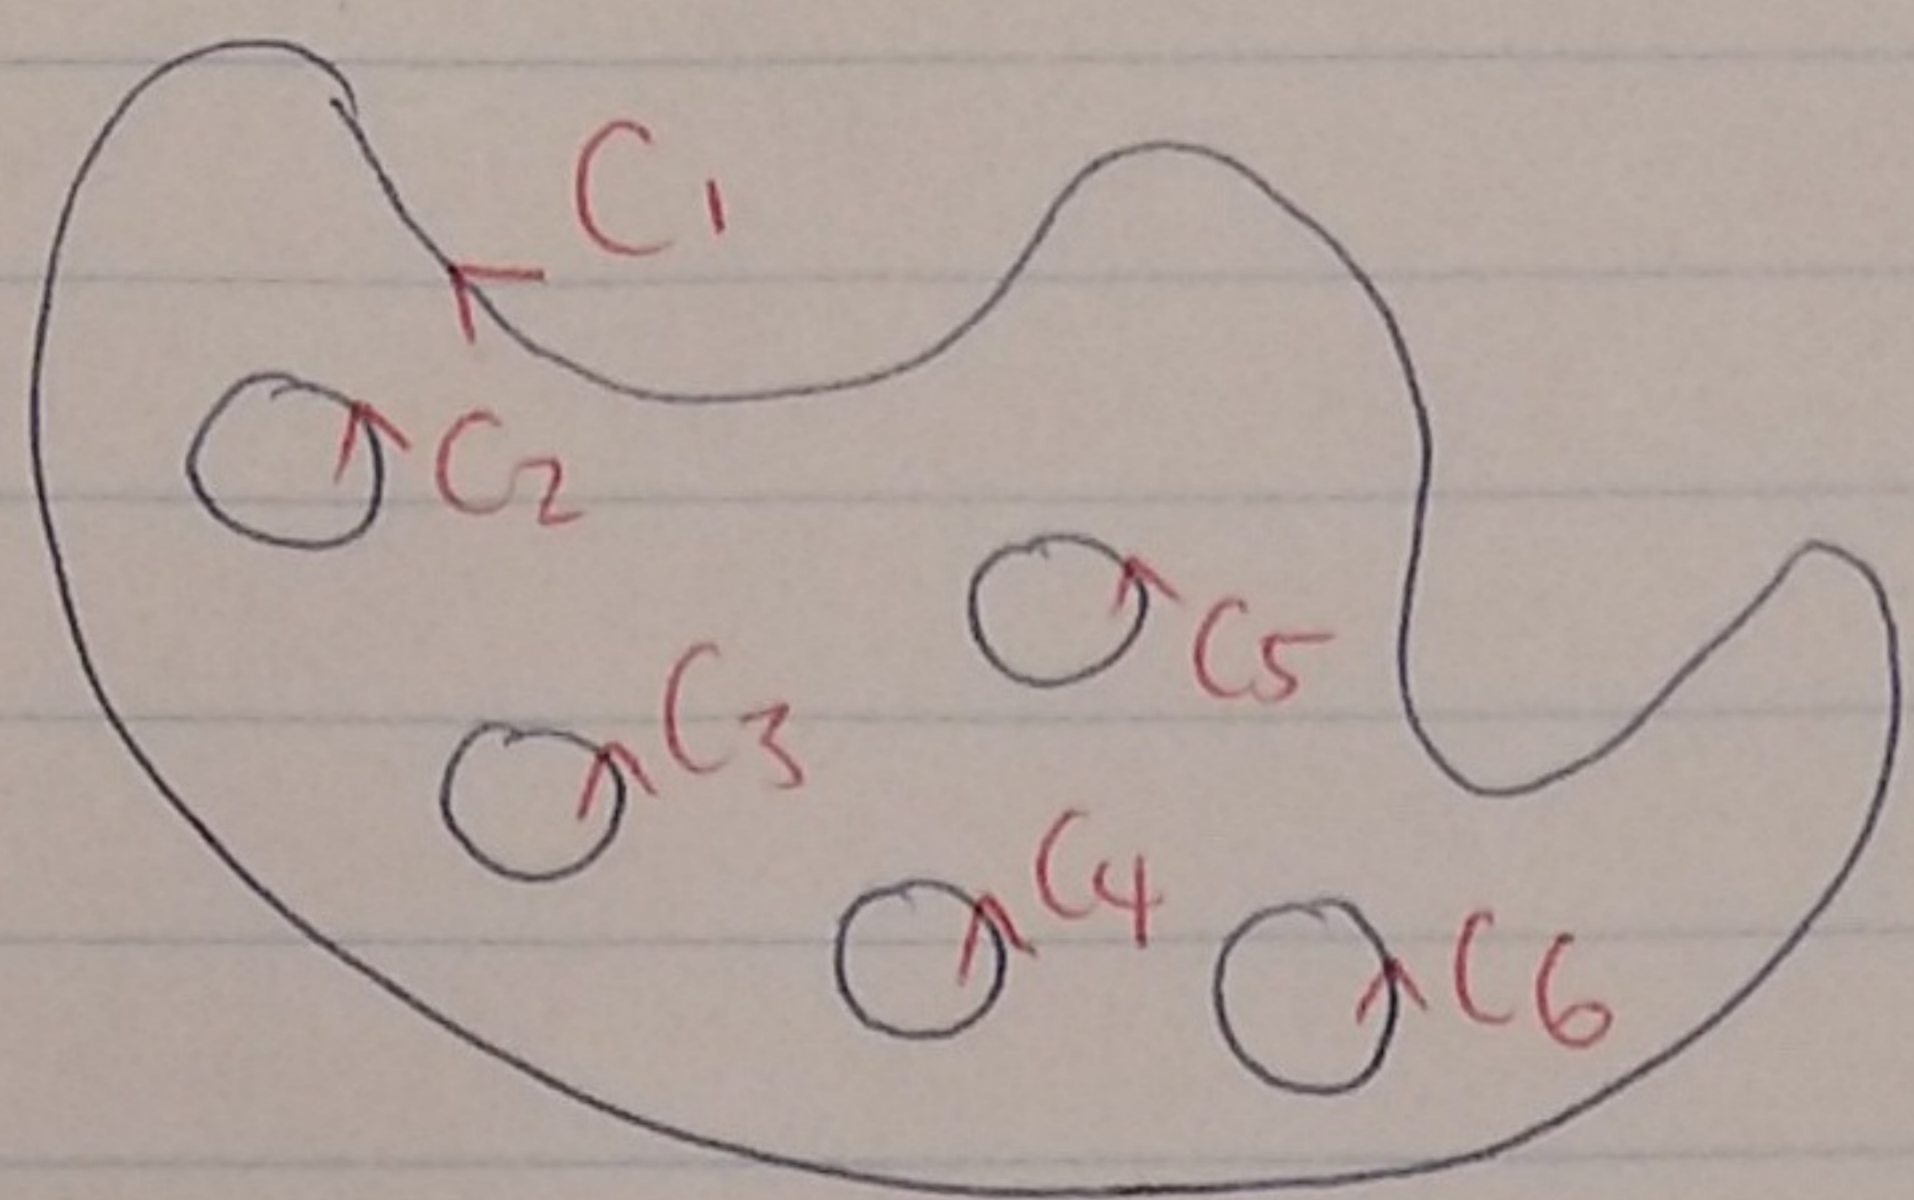 C1
C2
C5
C3
C4
C6